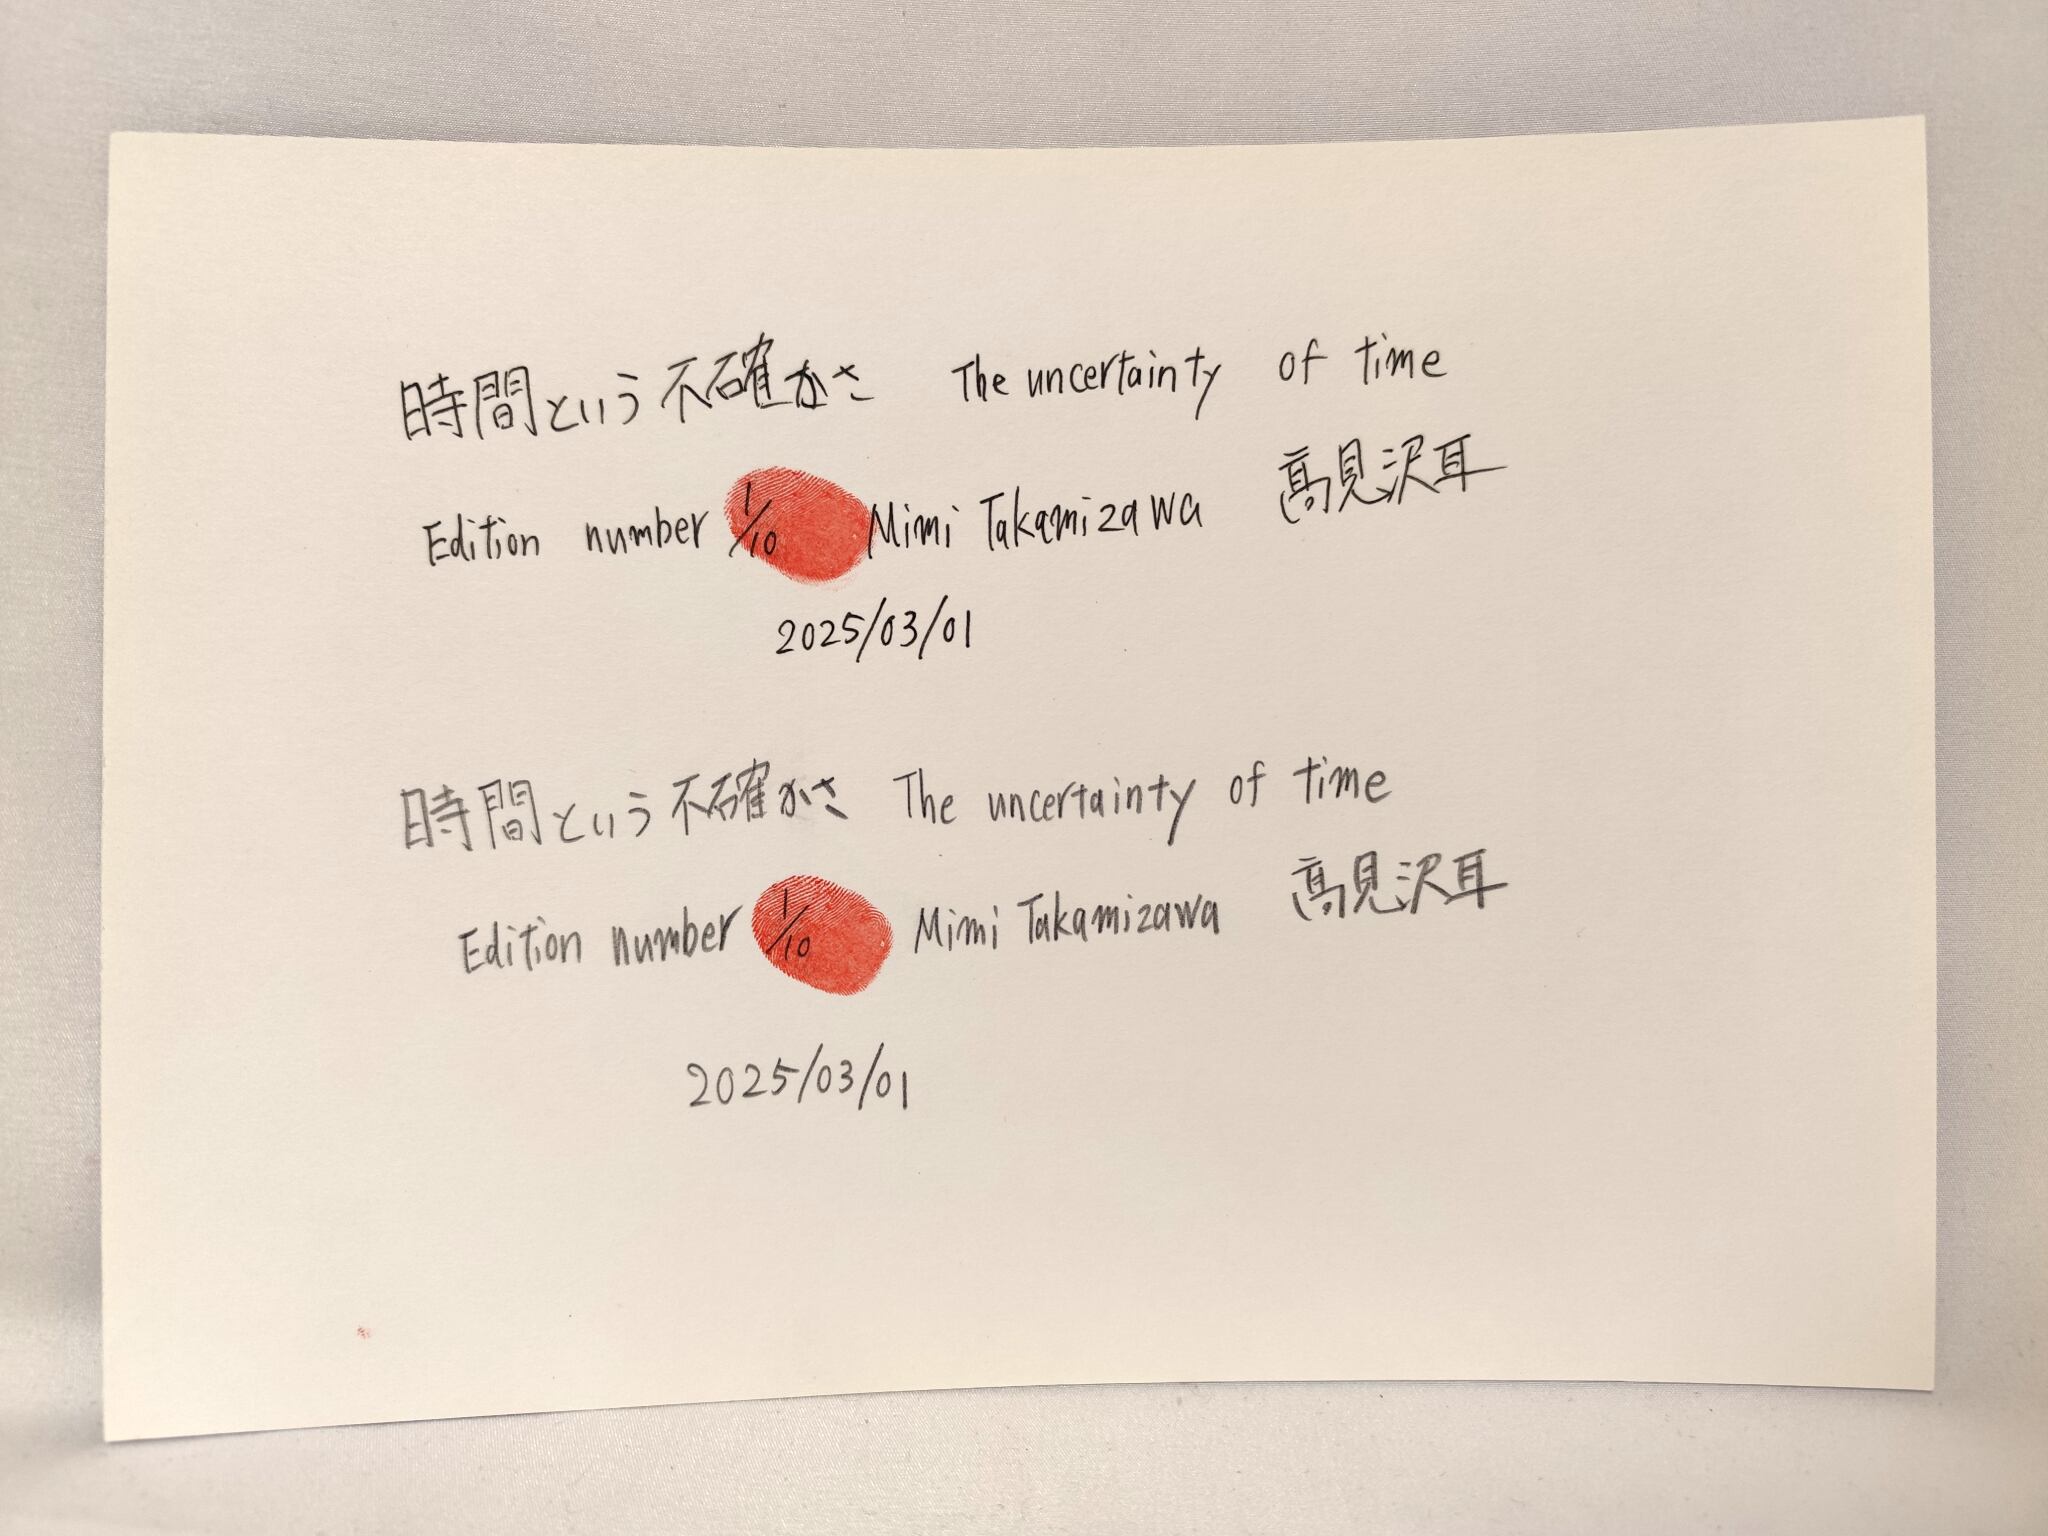 時間という不確かさ The uncertainty of time
Edition number 1/10 Mimi Takamizawa 高見沢耳
2025/03/01
時間という不確かさ The uncertainty of time
Edition number 1/10 Mimi Takamizawa 高見沢耳
2025/03/01